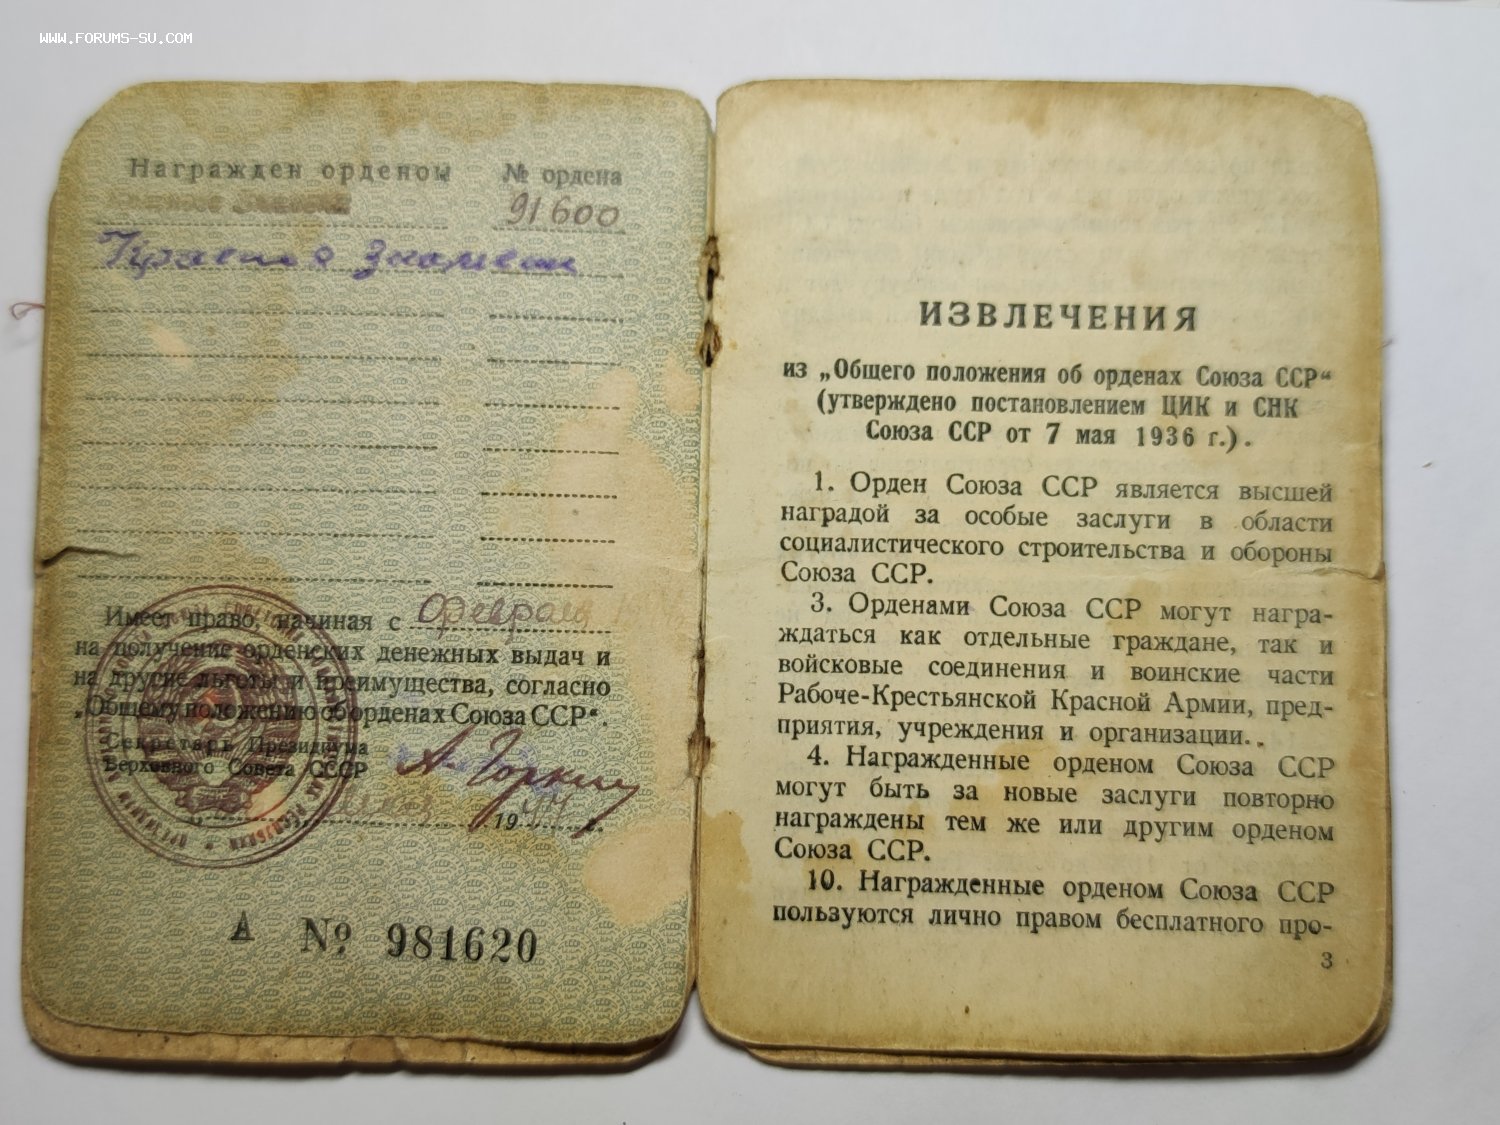 WWW.FORUMS-SU.COM
Награжден орденом № ордена
91600
Знамени
Имеет право, начиная с февраля
на получение орденских денежных выдач и
на другие льготы и преимущества, согласно
„Общему положению об орденах Союза ССР“.
Секретарь Президиума
Верховного Совета СССР А. Горкин
1944 г.
А № 981620
ИЗВЛЕЧЕНИЯ
из „Общего положения об орденах Союза ССР“
(утверждено постановлением ЦИК и СНК
Союза ССР от 7 мая 1936 г.).
1. Орден Союза ССР является высшей
наградой за особые заслуги в области
социалистического строительства и обороны
Союза ССР.
3. Орденами Союза ССР могут награ-
ждаться как отдельные граждане, так и
войсковые соединения и воинские части
Рабоче-Крестьянской Красной Армии, пред-
приятия, учреждения и организации.
4. Награжденные орденом Союза ССР
могут быть за новые заслуги повторно
награждены тем же или другим орденом
Союза ССР.
10. Награжденные орденом Союза ССР
пользуются лично правом бесплатного про-
3